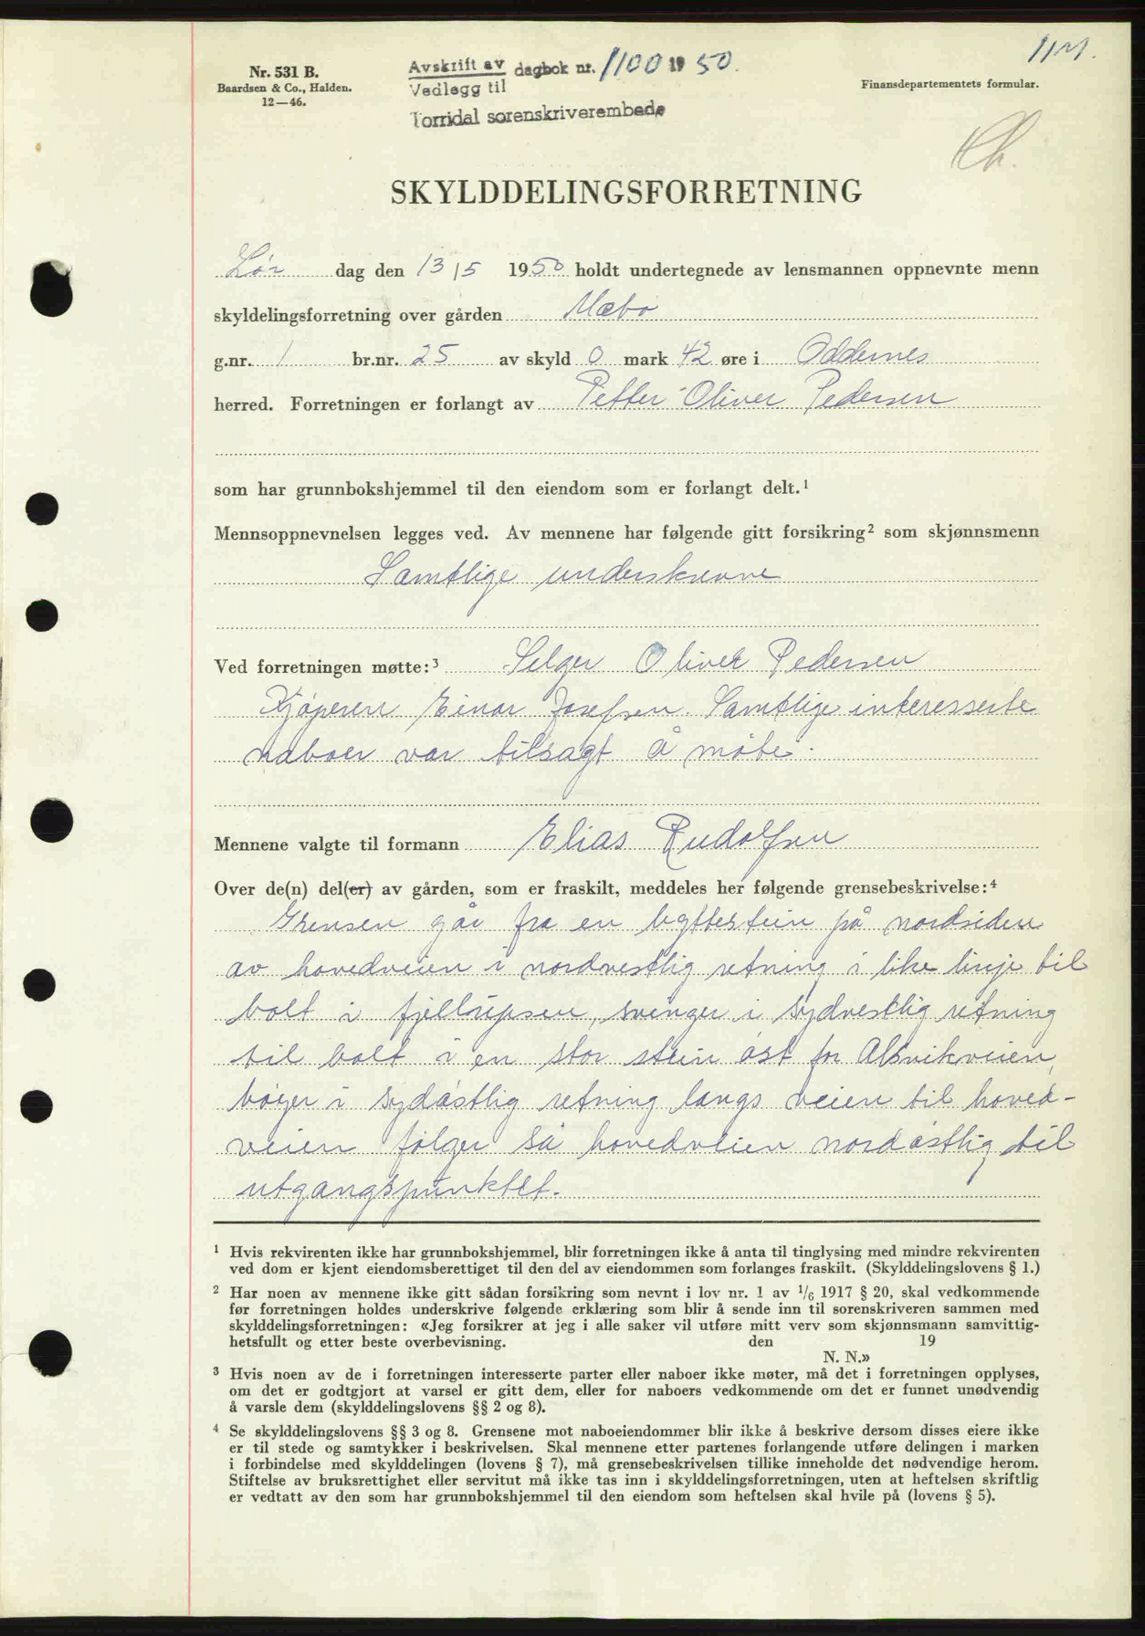 1171.
Nr. 531 B.
Baardsen & Co., Halden.
12—46.
Avskrift av
Vedlegg til
dagbok nr. 1100 1950.
Torridal sorenskriverembede
Finansdepartementets formular.
SKYLDDELINGSFORRETNING
Lør dag den 13/5 1950 holdt undertegnede av lensmannen oppnevnte menn
skyldelingsforretning over gården Mæbø
g.nr. 1 br.nr. 25 av skyld 0 mark 42 øre i Oddernes
herred. Forretningen er forlangt av Petter Oliver Pedersen
som har grunnbokshjemmel til den eiendom som er forlangt delt.¹
Mennsoppnevnelsen legges ved. Av mennene har følgende gitt forsikring² som skjønnsmenn
Samtlige underskrevne
Ved forretningen møtte:³ Selger Oliver Pedersen
Kjøperen Einar Josefsen. Samtlige interesserte
naboer var tilsagt å møte.
Mennene valgte til formann Elias Rudolfsen
Over de(n) del(er) av gården, som er fraskilt, meddeles her følgende grensebeskrivelse:⁴
Grensen går fra en byttestein på nordsiden
av hovedveien i nordvestlig retning i like linje til
bolt i fjellripsen, svinger i sydvestlig retning
til bolt i en stor stein øst for Alsvikveien,
bøyer i sydøstlig retning langs veien til hoved-
veien følger så hovedveien nordøstlig til
utgangspunktet.
¹ Hvis rekvirenten ikke har grunnbokshjemmel, blir forretningen ikke å anta til tinglysing med mindre rekvirenten
ved dom er kjent eiendomsberettiget til den del av eiendommen som forlanges fraskilt. (Skylddelingslovens § 1.)
² Har noen av mennene ikke gitt sådan forsikring som nevnt i lov nr. 1 av 1/6 1917 § 20, skal vedkommende
før forretningen holdes underskrive følgende erklæring som blir å sende inn til sorenskriveren sammen med
skylddelingsforretningen: «Jeg forsikrer at jeg i alle saker vil utføre mitt verv som skjønnsmann samvittig-
hetsfullt og etter beste overbevisning. den 19
N. N.»
³ Hvis noen av de i forretningen interesserte parter eller naboer ikke møter, må det i forretningen opplyses,
om det er godtgjort at varsel er gitt dem, eller for naboers vedkommende om det er funnet unødvendig
å varsle dem (skylddelingslovens §§ 2 og 8).
⁴ Se skylddelingslovens §§ 3 og 8. Grensene mot naboeiendommer blir ikke å beskrive dersom disses eiere ikke
er til stede og samtykker i beskrivelsen. Skal mennene etter partenes forlangende utføre delingen i marken
i forbindelse med skylddelingen (lovens § 7), må grensebeskrivelsen tillike inneholde det nødvendige herom.
Stiftelse av bruksrettighet eller servitut må ikke tas inn i skylddelingsforretningen, uten at heftelsen skriftlig
er vedtatt av den som har grunnbokshjemmel til den eiendom som heftelsen skal hvile på (lovens § 5).